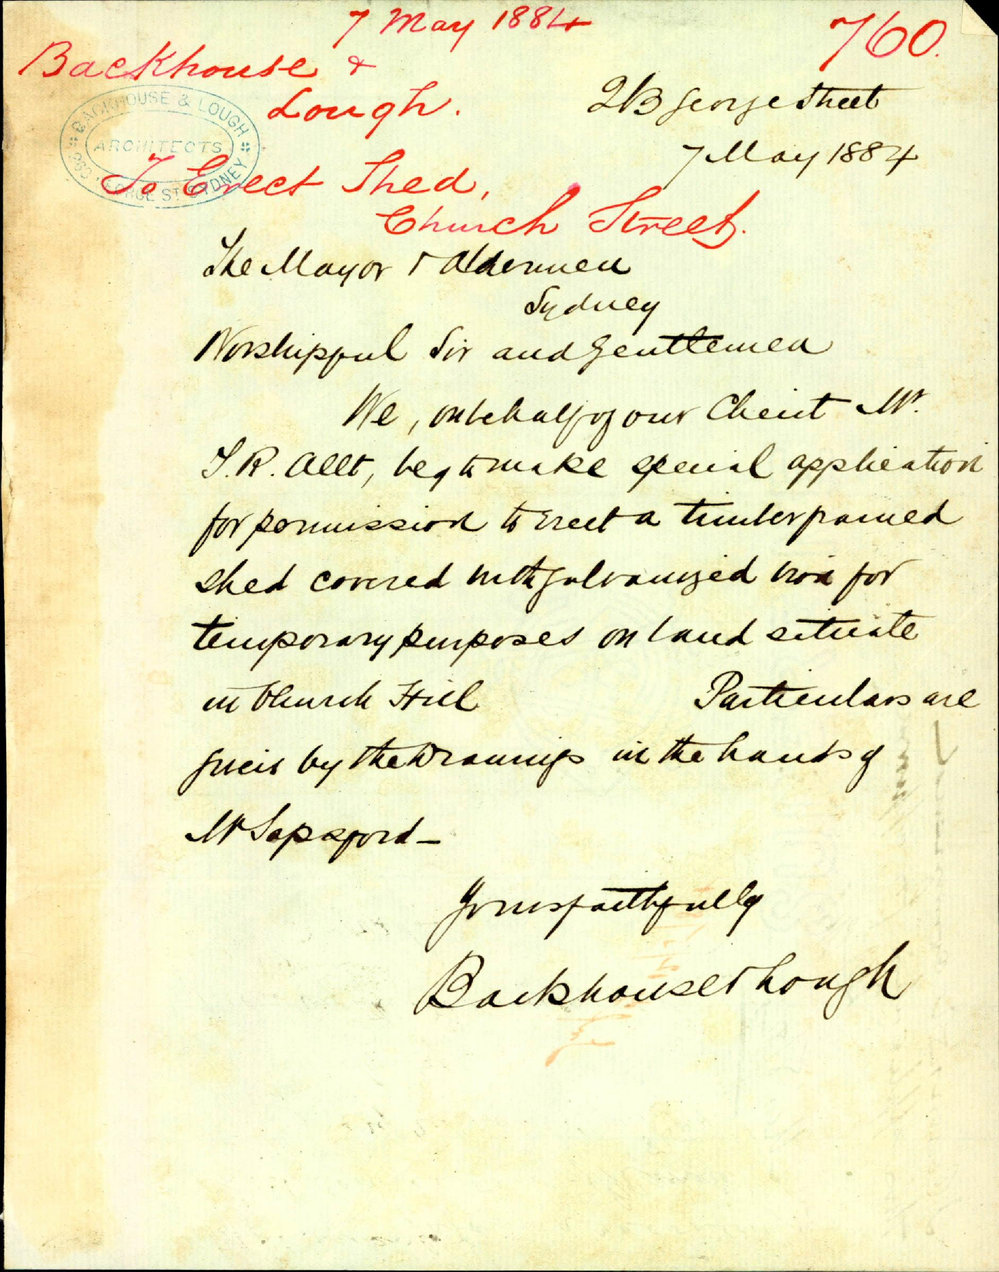 7 May 1884
760.
Backhouse &
Lough.
BACKHOUSE & LOUGH
ARCHITECTS
GEORGE ST SYDNEY
George Street
7 May 1884
To Erect Shed,
Church Street.
The Mayor & Aldermen
Sydney
Worshipful Sir and Gentlemen
We, on behalf of our Client Mr.
T.R. Allt, beg to make special application
for permission to erect a timber framed
shed covered with galvanized iron for
temporary purposes on land situate
in Church Hill Particulars are
given by the Drawings in the hands of
Mr Sapsford—
Yours faithfully
Backhouse & Lough